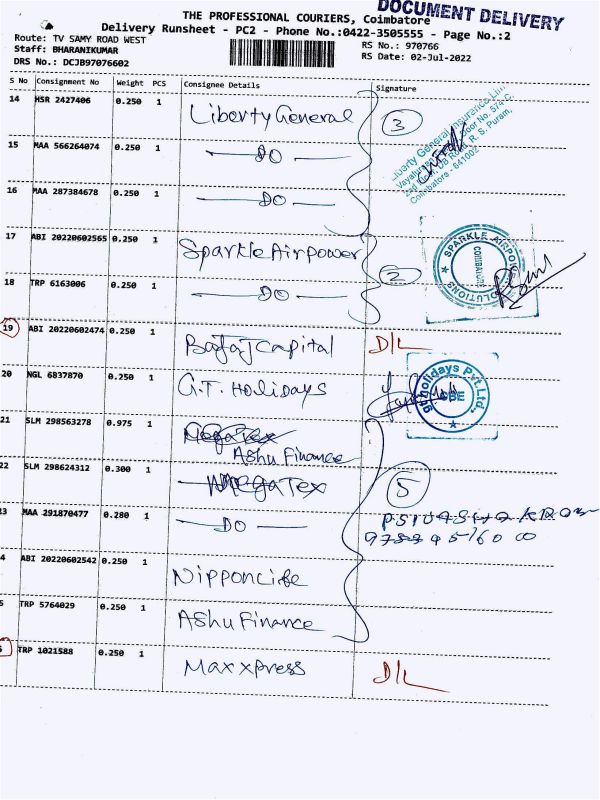 DOCUMENT DELIVERY
THE PROFESSIONAL COURIERS, Coimbatore
Delivery Runsheet - PC2 - Phone No.:0422-3505555 - Page No.:2
Route: TV SAMY ROAD WEST
RS No.: 970766
Staff: BHARANIKUMAR
RS Date: 02-Jul-2022
DRS No.: DCJB97076602
S No Consignment No Weight PCS Consignee Details Signature
14 HSR 2427406 0.250 1 Liberty General 3
Liberty General Insurance
R. S. Puram,
Coimbatore - 641002
15 MAA 566264074 0.250 1 — DO —
16 MAA 287384678 0.250 1 — DO —
17 ABI 20220602565 0.250 1 Sparkle Airpower 2
SPARKLE AIRPOWER SOLUTIONS
COIMBATORE
18 TRP 6163006 0.250 1 — DO —
19 ABI 20220602474 0.250 1 Bajaj Capital D/L
20 NGL 6837870 0.250 1 G.T. Holidays
gt holidays Pvt.Ltd.,
CBE
21 SLM 298563278 0.975 1 Ashu Finance
22 SLM 298624312 0.300 1 MegaTex 5
3 MAA 291870477 0.280 1 — DO —
4 ABI 20220602542 0.250 1 Nippon Life
5 TRP 5764029 0.250 1 Ashu Finance
6 TRP 1021588 0.250 1 Maxxpress D/L